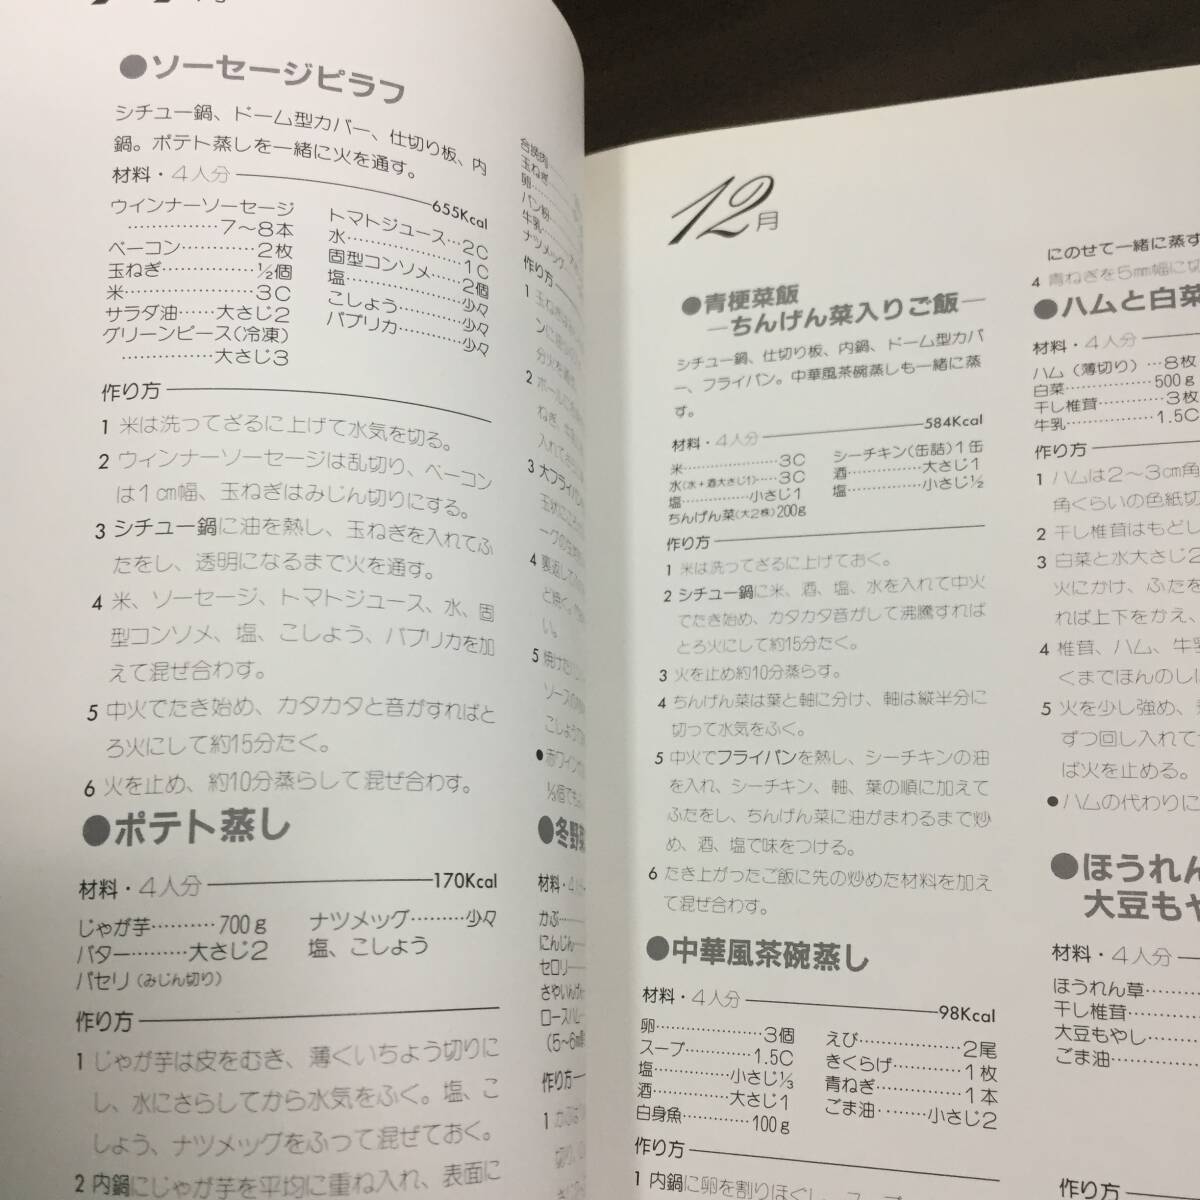 ●ソーセージピラフ
シチュー鍋、ドーム型カバー、仕切り板、内
鍋。ポテト蒸しを一緒に火を通す。
材料・4人分
655Kcal
ウインナーソーセージ
……………7〜8本
ベーコン…………2枚
玉ねぎ……………½個
米…………………3C
サラダ油……大さじ2
グリーンピース(冷凍)
……………大さじ3
トマトジュース…2C
水…………………1C
固型コンソメ……2個
塩………………少々
こしょう………少々
パプリカ………少々
作り方
1 米は洗ってざるに上げて水気を切る。
2 ウィンナーソーセージは乱切り、ベーコン
は1cm幅、玉ねぎはみじん切りにする。
3 シチュー鍋に油を熱し、玉ねぎを入れてふ
たをし、透明になるまで火を通す。
4 米、ソーセージ、トマトジュース、水、固
型コンソメ、塩、こしょう、パプリカを加
えて混ぜ合わす。
5 中火でたき始め、カタカタと音がすればと
ろ火にして約15分たく。
6 火を止め、約10分蒸らして混ぜ合わす。
●ポテト蒸し
材料・4人分
170Kcal
じゃが芋………700g
バター………大さじ2
パセリ(みじん切り)
ナツメッグ………少々
塩、こしょう
作り方
1 じゃが芋は皮をむき、薄くいちょう切りに
し、水にさらしてから水気をふく。塩、こ
しょう、ナツメッグをふって混ぜておく。
2 内鍋にじゃが芋を平均に重ね入れ、表面に
合挽肉
玉ねぎ
卵
パン粉
牛乳
ナツメッグ
作り方
●冬野菜
材料・4人
かぶ
にんじん
セロリ
さやいんげん
ロースハム
作り方
12月
●青梗菜飯
―ちんげん菜入りご飯―
シチュー鍋、仕切り板、内鍋、ドーム型カバ
ー、フライパン。中華風茶碗蒸しも一緒に蒸
す。
材料・4人分
584Kcal
米…………………3C
水(水+酒大さじ1)……3C
塩……………小さじ1
ちんげん菜(大2株)200g
シーチキン(缶詰)1缶
酒……………大さじ1
塩……………小さじ½
作り方
1 米は洗ってざるに上げておく。
2 シチュー鍋に米、酒、塩、水を入れて中火
でたき始め、カタカタ音がして沸騰すれば
とろ火にして約15分たく。
3 火を止め約10分蒸らす。
4 ちんげん菜は葉と軸に分け、軸は縦半分に
切って水気をふく。
5 中火でフライパンを熱し、シーチキンの油
を入れ、シーチキン、軸、葉の順に加えて
ふたをし、ちんげん菜に油がまわるまで炒
め、酒、塩で味をつける。
6 たき上がったご飯に先の炒めた材料を加え
て混ぜ合わす。
●中華風茶碗蒸し
材料・4人分
98Kcal
卵…………………3個
スープ…………1.5C
塩…………小さじ⅓
酒…………大さじ1
白身魚…………100g
えび………………2尾
きくらげ…………1枚
青ねぎ……………1本
ごま油………小さじ2
作り方
1 内鍋に卵を割りほぐし、スープ
にのせて一緒に蒸す
4 青ねぎを5mm幅に切
●ハムと白菜
材料・4人分
ハム(薄切り)…8枚
白菜……………500g
干し椎茸…………3枚
牛乳……………1.5C
作り方
1 ハムは2〜3cm角
角くらいの色紙切
2 干し椎茸はもどし
3 白菜と水大さじ2
火にかけ、ふたを
れば上下をかえ、
4 椎茸、ハム、牛乳
くまでほんのしば
5 火を少し強め、
ずつ回し入れて
ば火を止める。
●ハムの代わりに
●ほうれん
大豆もや
材料・4人分
ほうれん草
干し椎茸
大豆もやし
ごま油
作り方